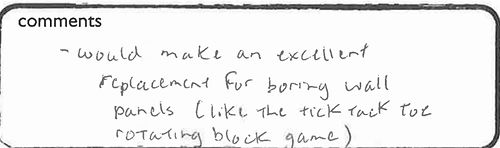 comments
- would make an excellent
replacement for boring wall
panels (like the tick tack toe
rotating block game)